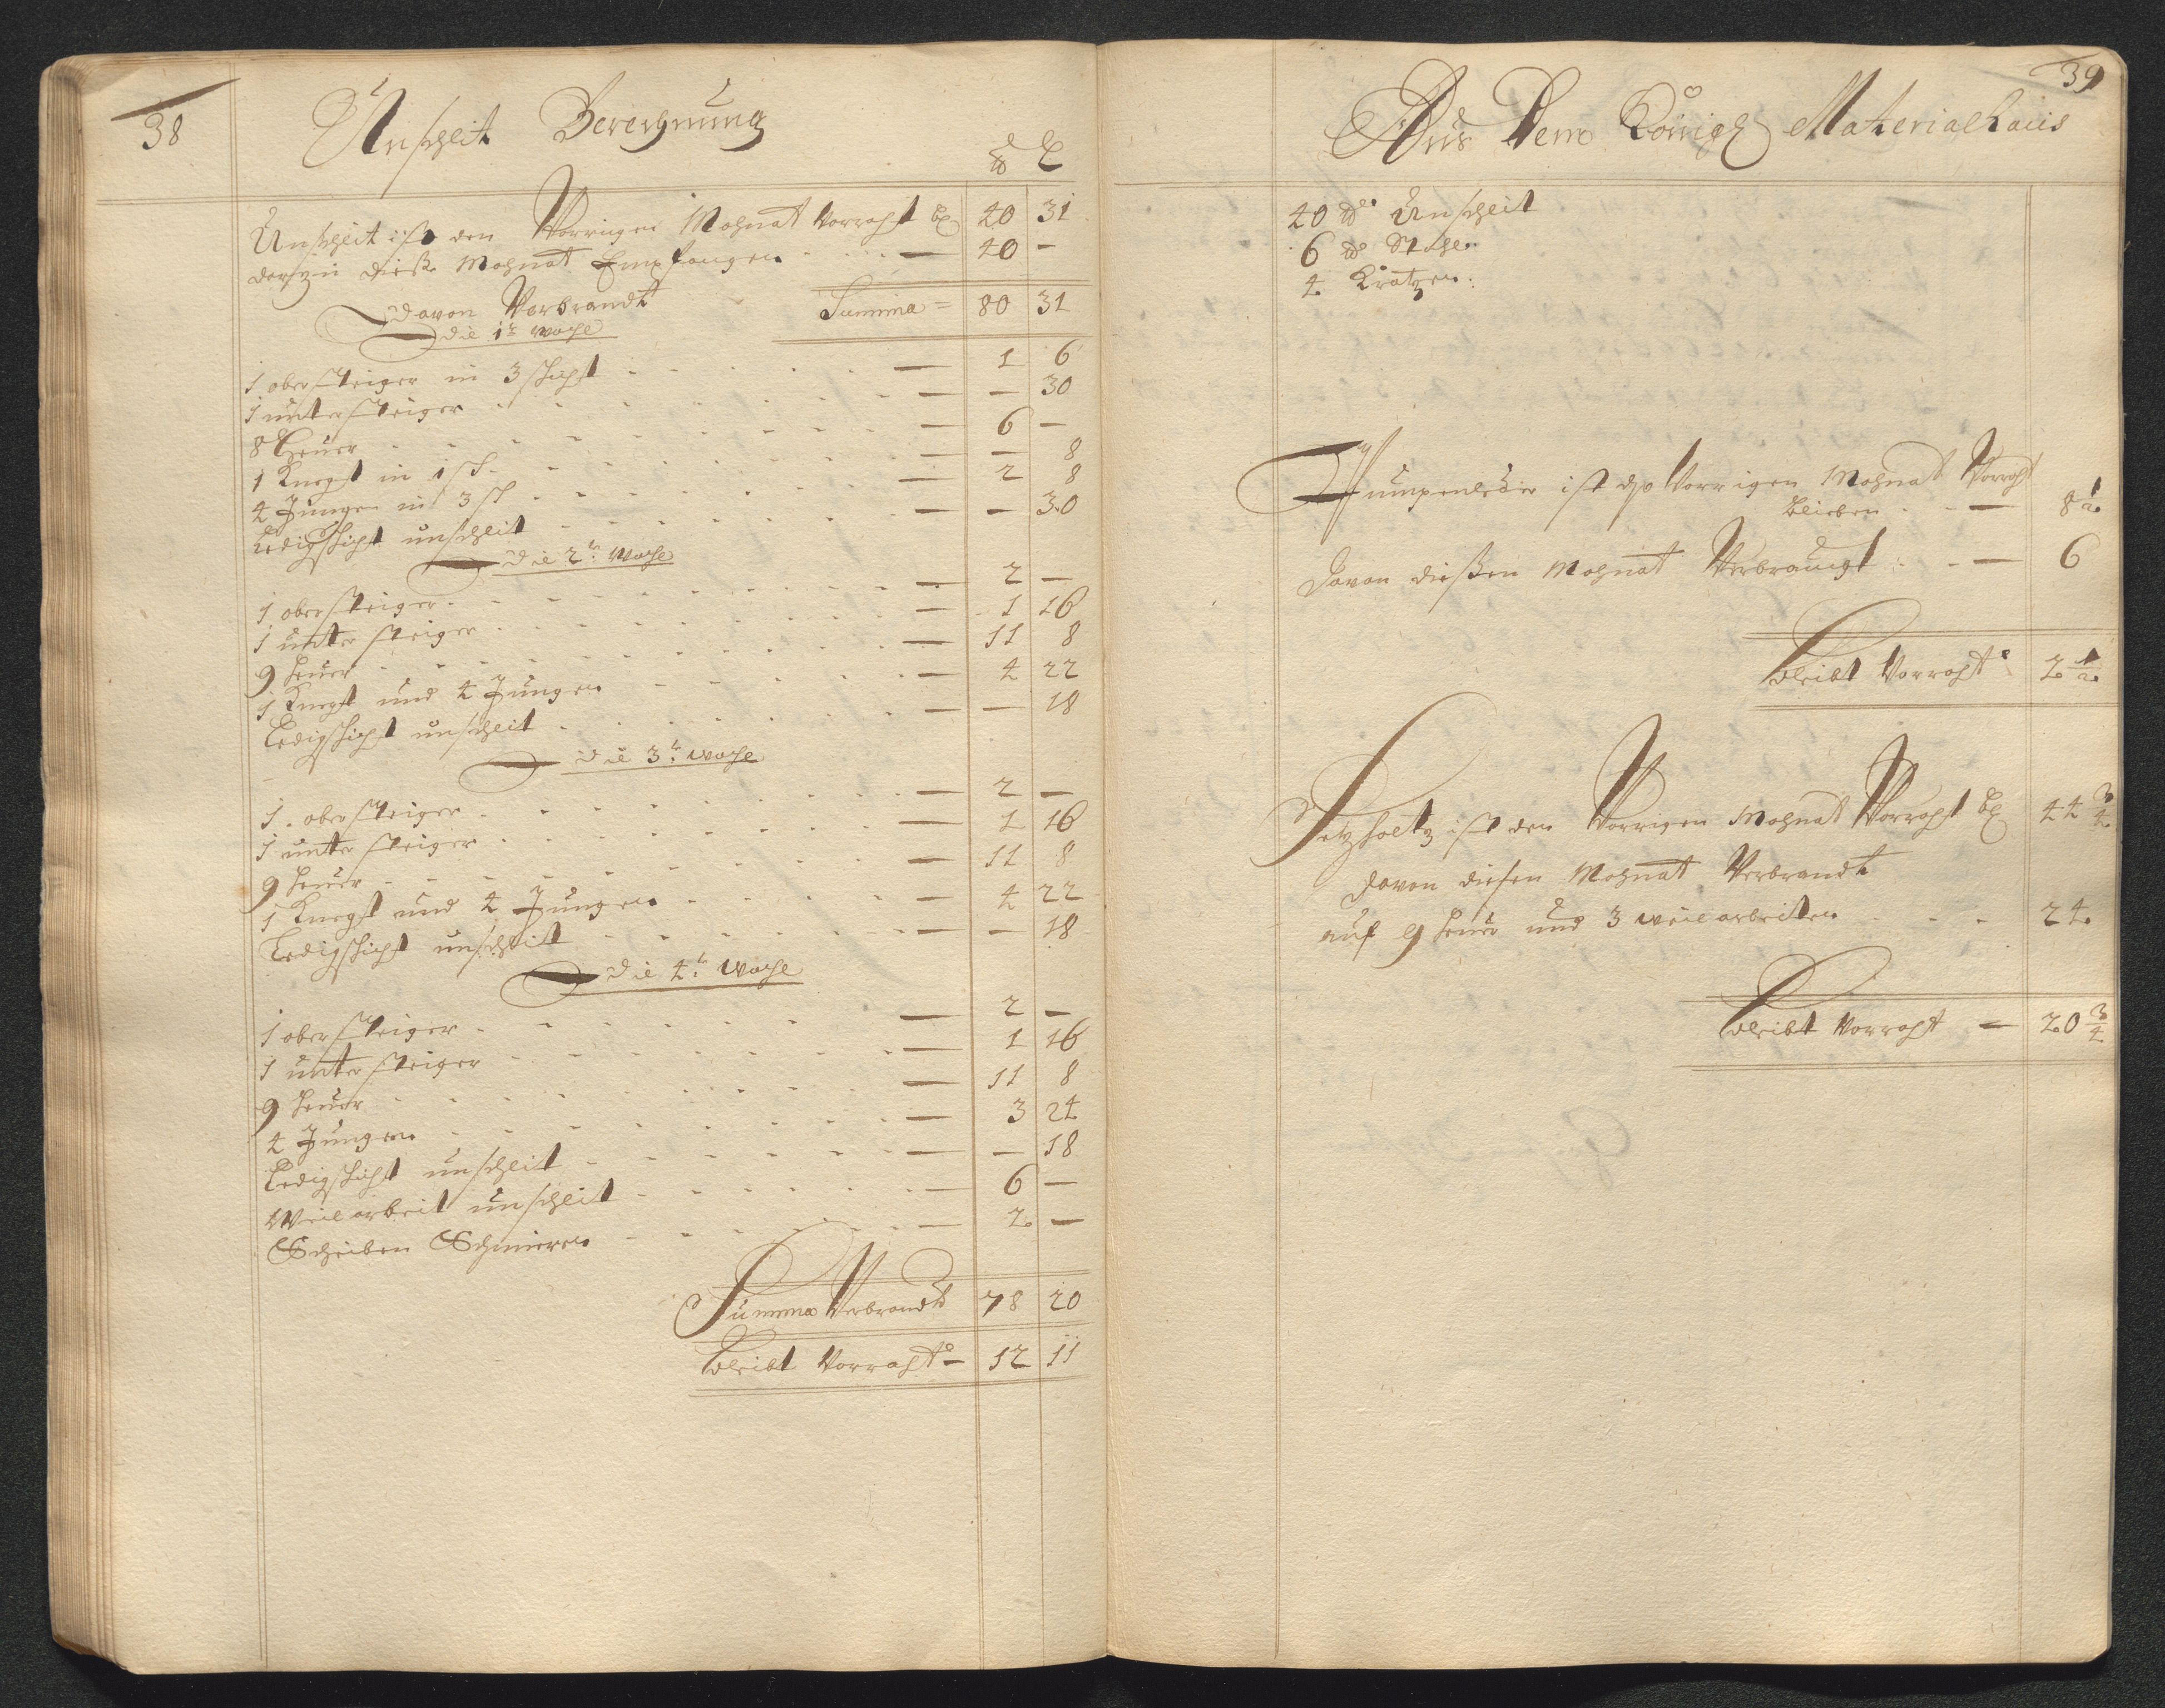 38
Unschleit Berechnung
℔ L
Unschleit ist den Vorrigen Mohnat Vorraht bl 40 31
darzu diese Mohnat Empfangen — 40 —
Summa = 80 31
davon Verbrandt
die 1te woche
1 obersteiger in 3 schicht — 1 6
1 untersteiger — — 30
8 heuer — 6 —
1 Knecht in 1 sch. — — 8
4 Jungen in 3 sch — 2 8
Ledigschicht unschleit — — 30
die 2te woche
1 obersteiger — 2 —
1 unter steiger — 1 16
9 heuer — 11 8
1 Knecht und 4 Jungen — 4 22
Ledigschicht unschleit — — 18
die 3te woche
1. obersteiger — 2 —
1 unter steiger — 1 16
9 heuer — 11 8
1 Knecht und 4 Jungen — 4 22
Ledigschicht unschleit — — 18
die 4te woche
1 obersteiger — 2 —
1 unter steiger — 1 16
9 heuer — 11 8
4 Jungen — 3 24
Ledigschicht unschleit — — 18
Weilarbeit unschleit — 6 —
Scheiben Schmieren — 2 —
Summa Verbrandt 78 20
bleibt Vorraht — 12 11
39
Aus Dem Königl Materialhaus
40 ℔ Unschleit
6 ℔ Stahl
4 Krätzen
Pumpenleder ist Vorrigen Mohnat Vorraht
blieben — 8 1/2
davon dießen Mohnat Verbraucht — 6
bleibt Vorraht 2 1/2
Setzholtz ist den Vorrigen Mohnat Vorraht bl 44 3/4
davon diesen Mohnat Verbrandt
auf 9 heuer und 3 weilarbeiten 24
bleibt Vorraht — 20 3/4